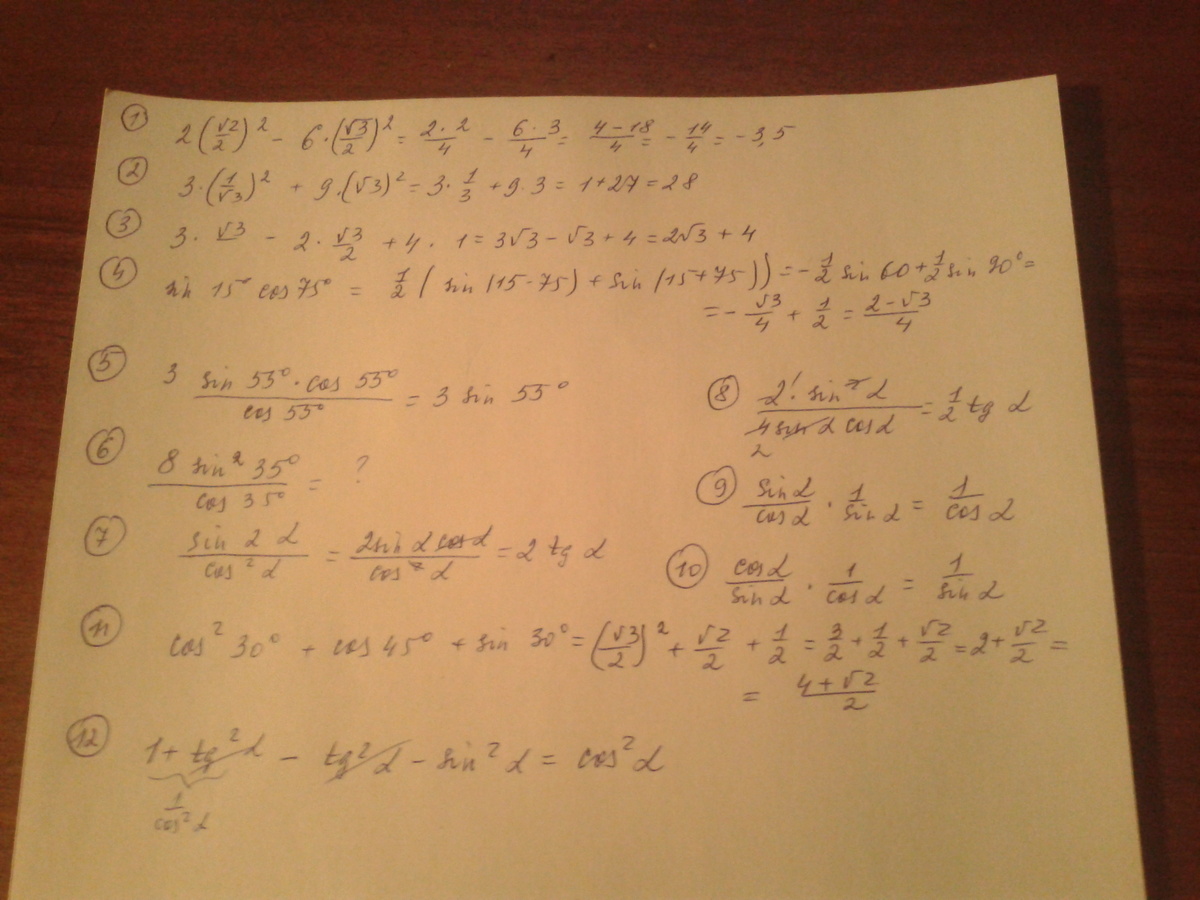 ① 2(√2/2)² - 6·(√3/2)² = 2·2/4 - 6·3/4 = 4-18/4 = -14/4 = -3,5
② 3·(1/√3)² + 9·(√3)² = 3·1/3 + 9·3 = 1+27 = 28
③ 3·√3 - 2·√3/2 + 4·1 = 3√3 - √3 + 4 = 2√3 + 4
④ sin 15° cos 75° = 1/2 (sin(15-75) + sin(15+75)) = -1/2 sin 60 + 1/2 sin 90° =
= -√3/4 + 1/2 = 2-√3/4
⑤ 3 sin 55°·cos 55°/cos 55° = 3 sin 55°
⑥ 8 sin² 35°/cos 35° = ?
⑦ sin 2α/cos² α = 2sin α cos α/cos² α = 2 tg α
⑧ 2¹ sin² α/4 sin α cos α = 1/2 tg α
2
⑨ sin α/cos α · 1/sin α = 1/cos α
⑩ cos α/sin α · 1/cos α = 1/sin α
⑪ cos² 30° + cos 45° + sin 30° = (√3/2)² + √2/2 + 1/2 = 3/2 + 1/2 + √2/2 = 2 + √2/2 =
= 4+√2/2
⑫ 1 + tg² α - tg² α - sin² α = cos² α
1/cos² α